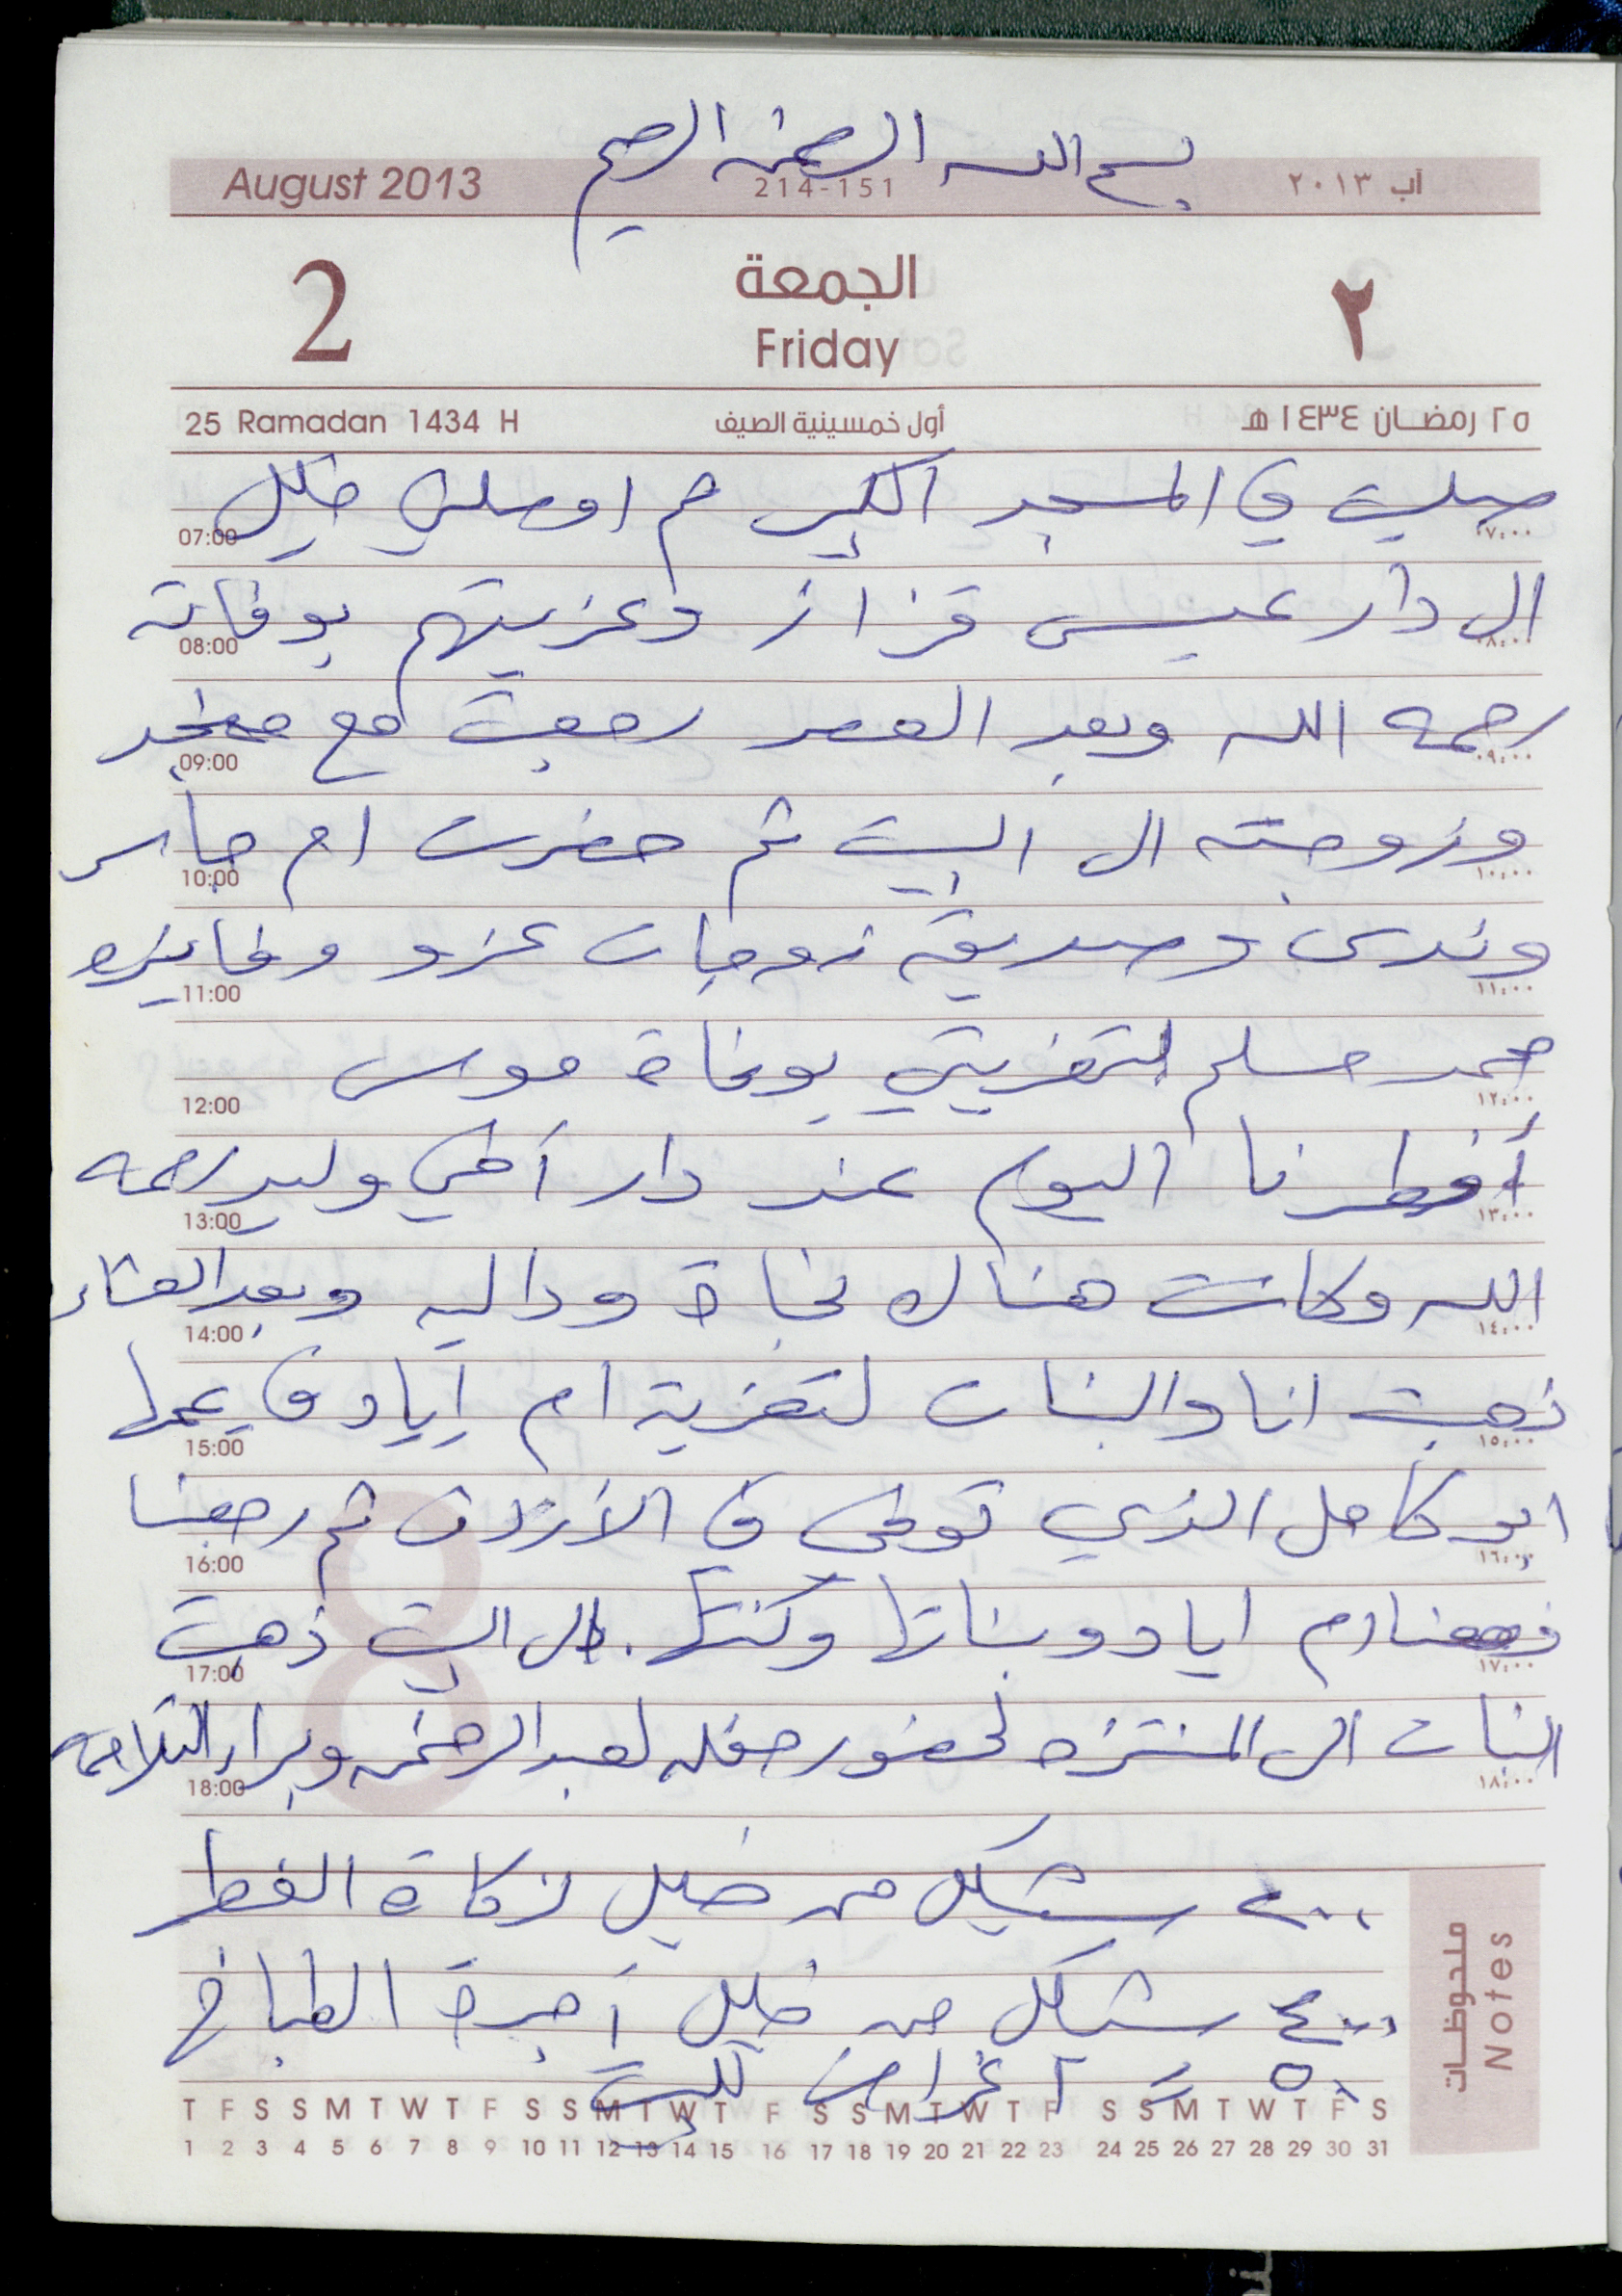 بسم الله الرحمن الرحيم
August 2013 214-151 آب ٢٠١٣
2 الجمعة ٢
Friday
25 Ramadan 1434 H أول خمسينية الصيف ٢٥ رمضان ١٤٣٤ هـ
صليت في المسجد الكبير ثم اوصلني خليل
07:00 ٠٧:٠٠
الى دار عيسى قزاز وعزيتهم بوفاته
08:00 ٠٨:٠٠
رحمه الله وبعد العصر رجعت مع
09:00 ٠٩:٠٠
وزوجته الى البيت ثم حضرت ام جابر
10:00 ١٠:٠٠
وندى وصديقه زوجات عزو وفايزه
11:00 ١١:٠٠
حمد مسلم لتعزيتي بوفاة موسى
12:00 ١٢:٠٠
أفطرنا اليوم عند دار أخي وليد رحمه
13:00 ١٣:٠٠
الله وكانت هناك نجاة وداليه وبعد العشاء
14:00 ١٤:٠٠
ذهبت انا والبنات لتعزية ام إياد في عمها
15:00 ١٥:٠٠
ابو كامل الذي توفي في الأردن ثم رجعنا
16:00 ١٦:٠٠
ام اياد وبناتها وكنتها. الى البيت ذهبت
17:00 ١٧:٠٠
البنات الى المنتزه لحضور حفله لعبد الرحمن وبراء التلاحمه
18:00 ١٨:٠٠
٢٠٠ شيكل من خليل لزكاة الفطر
٤٠٠ شيكل من خليل أجرة الطباخ
٥٠ أغراض للبيت
ملحوظات
Notes
T F S S M T W T F S S M T W T F S S M T W T F S S M T W T F S
1 2 3 4 5 6 7 8 9 10 11 12 13 14 15 16 17 18 19 20 21 22 23 24 25 26 27 28 29 30 31